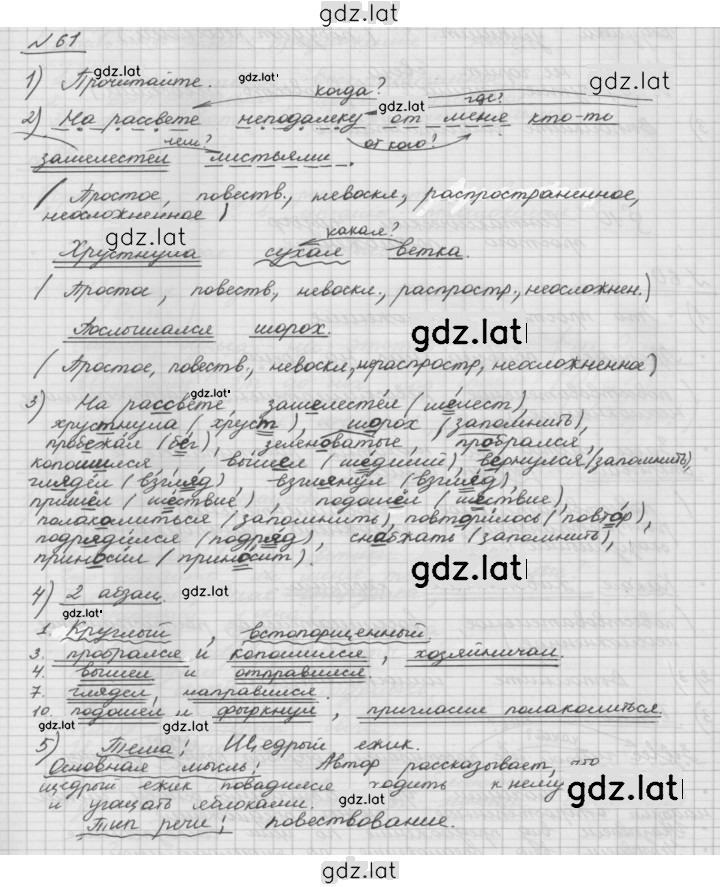 gdz.lat
№ 61
gdz.lat gdz.lat gdz.lat
1) Прочитайте. когда? где?
gdz.lat
2) На рассвете неподалеку от меня кто-то
чем? от кого?
зашелестел листьями.
(Простое, повеств., невоскл., распространенное,
неосложненное)
gdz.lat какая?
Хрустнула сухая ветка.
(Простое, повеств., невоскл., распростр., неосложнен.)
Послышался шорох. gdz.lat
(Простое, повеств., невоскл., нераспростр., неосложненное)
gdz.lat
3) На рассвете, зашелестел (шелест),
хрустнула (хруст), шорох (запомнить),
пробежал (бег), зеленоватые, пробрался,
копошился, вышел (шедший), вернулся (запомнить),
глядел (взгляд), взглянул (взгляд),
пришел (шествие), подошел (шествие),
полакомиться (запомнить), повторилось (повтор),
подрядился (подряд), снабжать (запомнить),
приносил (приносит). gdz.lat
4) 2 абзац. gdz.lat gdz.lat
gdz.lat
1. Круглый, встопорщенный.
3. пробрался и копошился, хозяйничал.
4. вышел и отправился.
7. глядел, направился.
10. подошел и фыркнул, пригласил полакомиться.
gdz.lat gdz.lat gdz.lat
5) Тема: Щедрый ежик.
Основная мысль: Автор рассказывает, что
щедрый ежик повадился ходить к нему
и угощать яблоками. gdz.lat gdz.lat
Тип речи: повествование.
gdz.lat